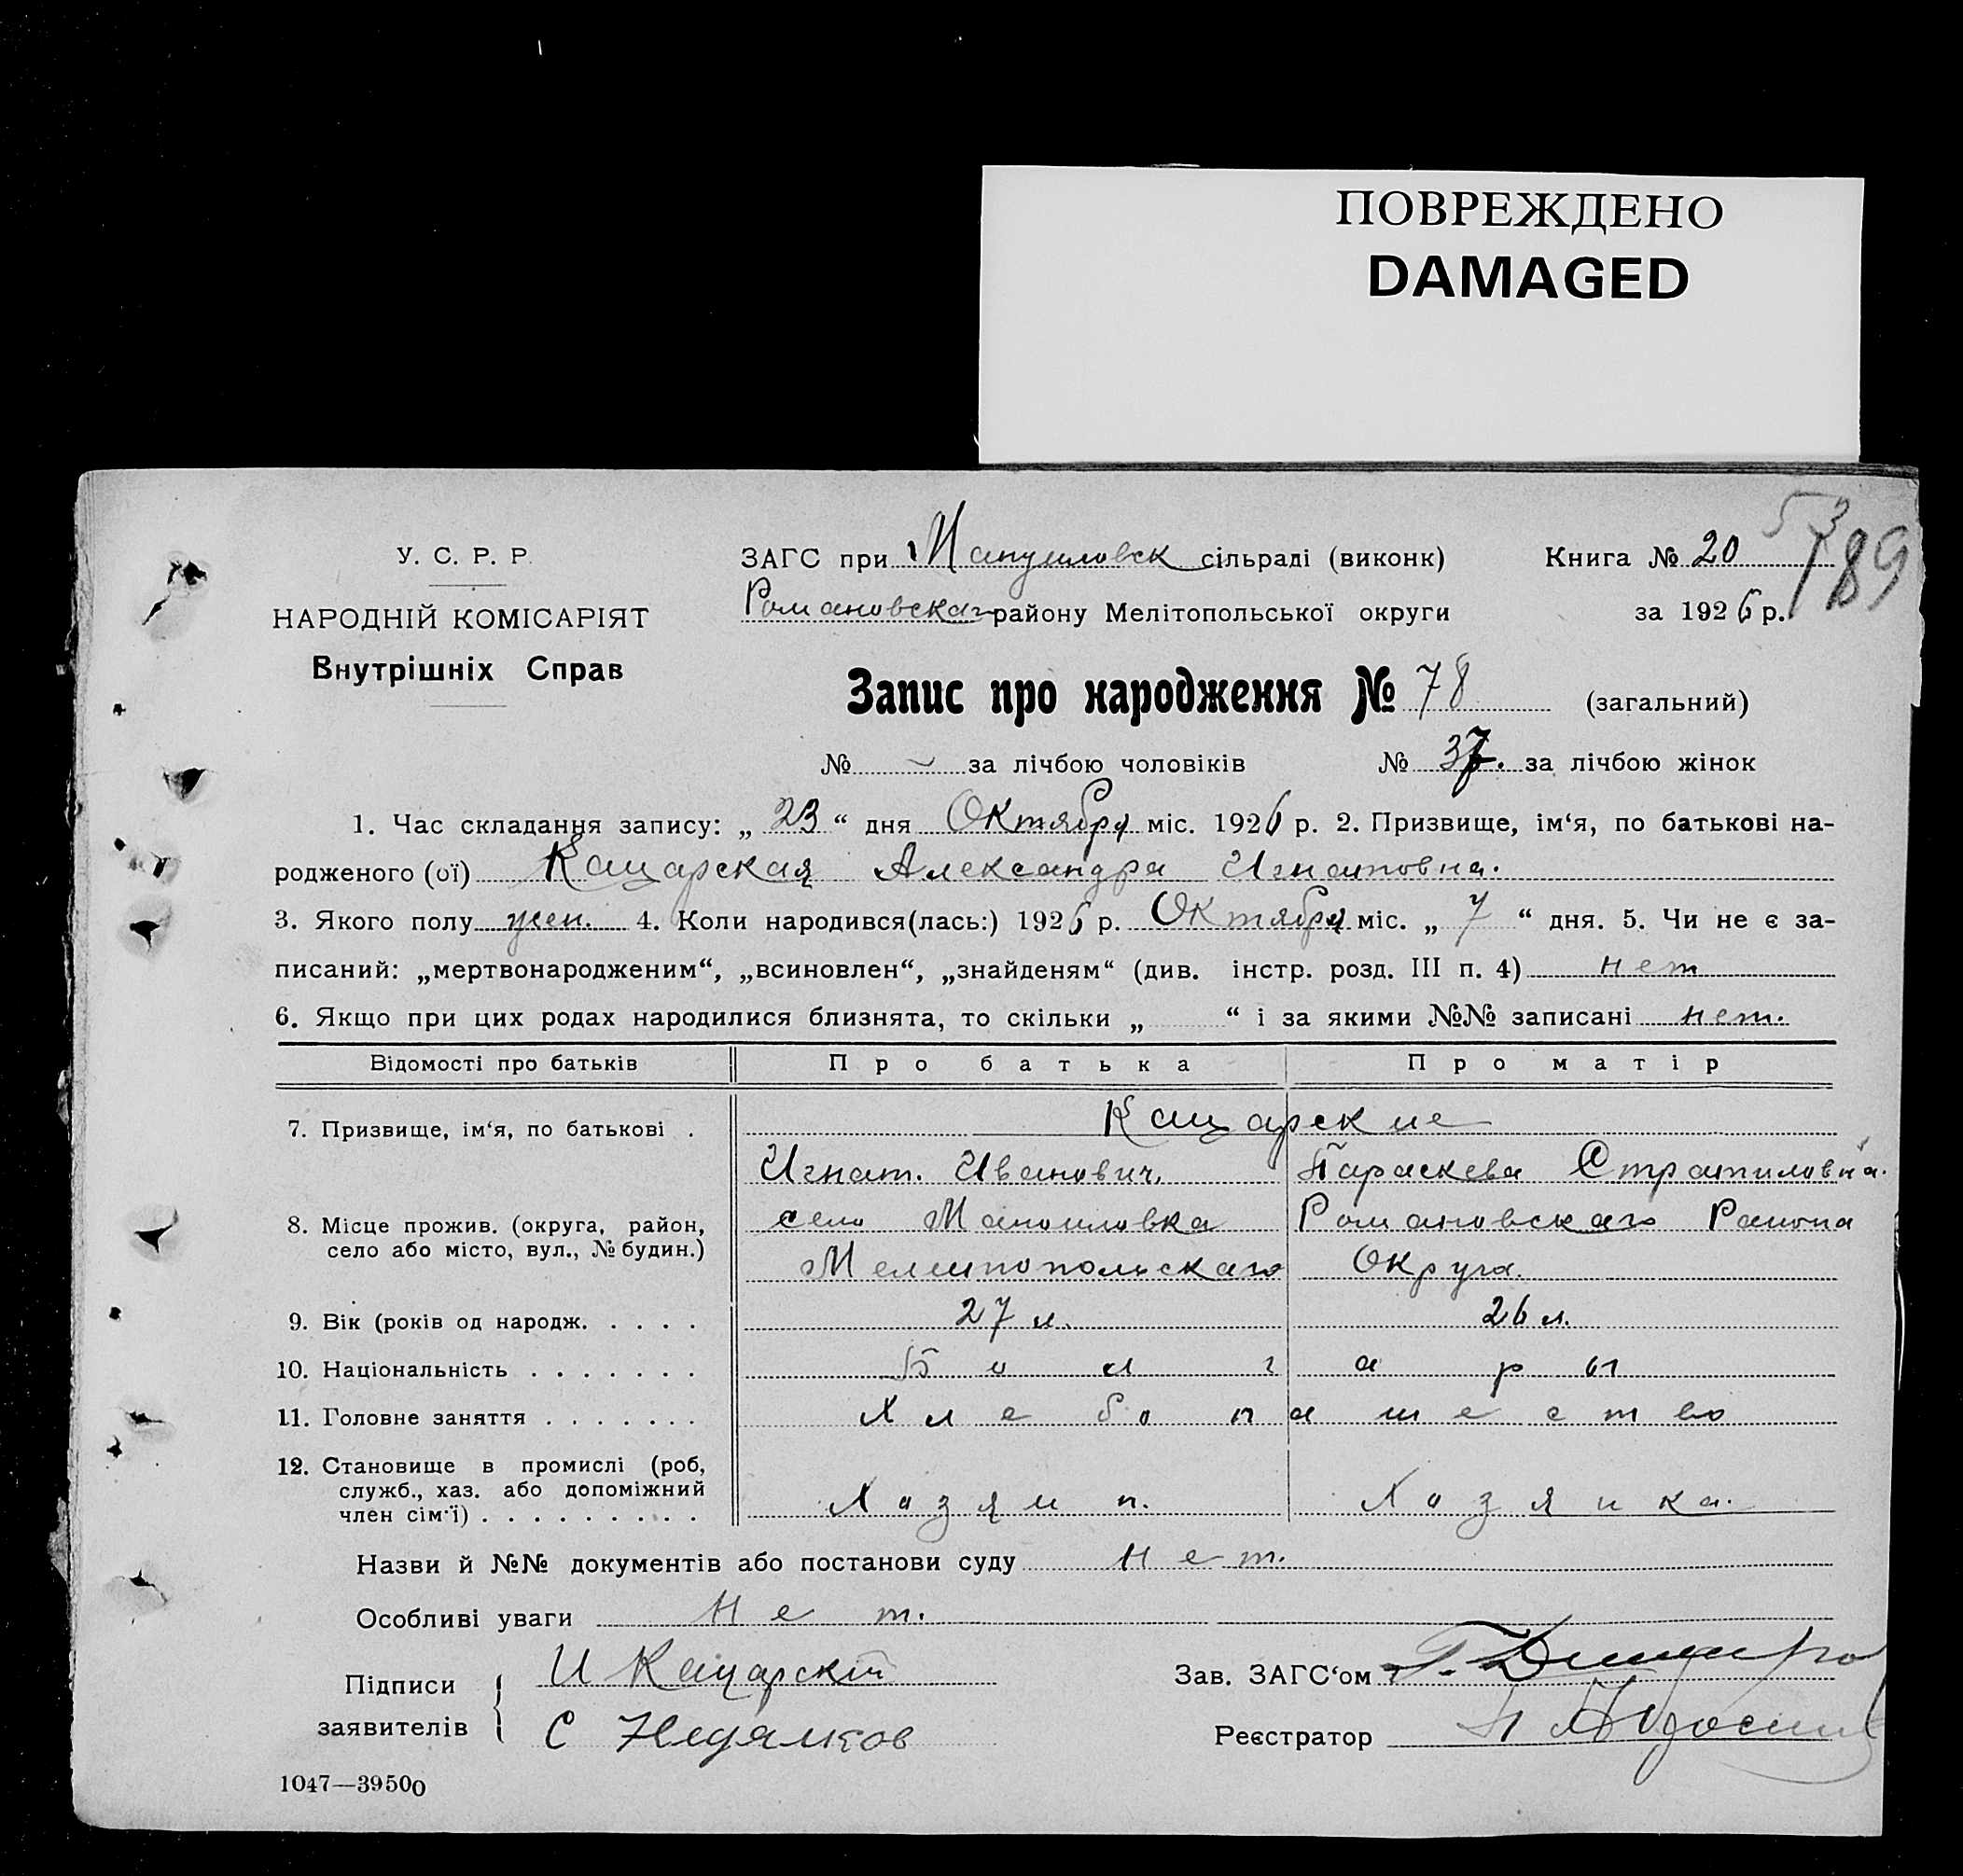 ПОВРЕЖДЕНО
DAMAGED
53
189
У. С. Р. Р.
НАРОДНІЙ КОМІСАРІЯТ
Внутрішніх Справ
ЗАГС при Мануиловск сільраді (виконк)
Романовскаг району Мелітопольської округи
Книга № 20
за 1926 р.
Запис про народження № 78 (загальний)
№ — за лічбою чоловіків № 37. за лічбою жінок
1. Час складання запису: „ 23 “ дня Октября міс. 1926 р. 2. Призвище, ім‘я, по батькові на-
родженого (ої) Кацарская Александра Игнатовна.
3. Якого полу жен. 4. Коли народився(лась:) 1926 р. Октября міс. „ 7 “ дня. 5. Чи не є за-
писаний: „мертвонародженим“, „всиновлен“, „знайденям“ (див. інстр. розд. III п. 4) нет
6. Якщо при цих родах народилися близнята, то скільки „ “ і за якими №№ записані нет.
Відомості про батьків Про батька Про матір
7. Призвище, ім‘я, по батькові . Кацарские
Игнат. Иванович. Параскева Стратиловна.
8. Місце прожив. (округа, район, село Маноиловка Романовскаго Раиона
село або місто, вул., № будин.) Мелитопольскаго Округа.
9. Вік (років од народж. . . . . 27 л. 26 л.
10. Національність . . . . . . . Болгары
11. Головне заняття . . . . . . . Хлебопашество
12. Становище в промислі (роб,
служб., хаз. або допоміжний
член сім‘ї) . . . . . . . . . Хозяин. Хозяика.
Назви й №№ документів або постанови суду нет.
Особливі уваги нет.
Підписи И Кацарскій
заявителів С Недялков
Зав. ЗАГС‘ом
Реєстратор
1047—39500